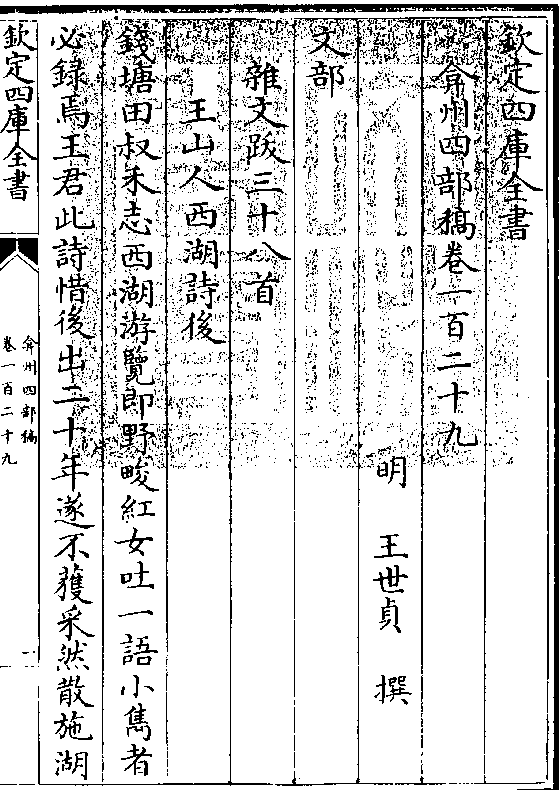 欽定四庫全書
弇州四部稿卷一百二十九
明 王世貞 撰
文部
雜文跋三十八首
王山人西湖詩後
錢塘田叔禾志西湖游覽即野畯紅女吐一語小雋者
必録焉王君此詩惜後出二十年遂不獲采然散施湖
欽定四庫全書
弇州四部稿
卷一百二十九
一